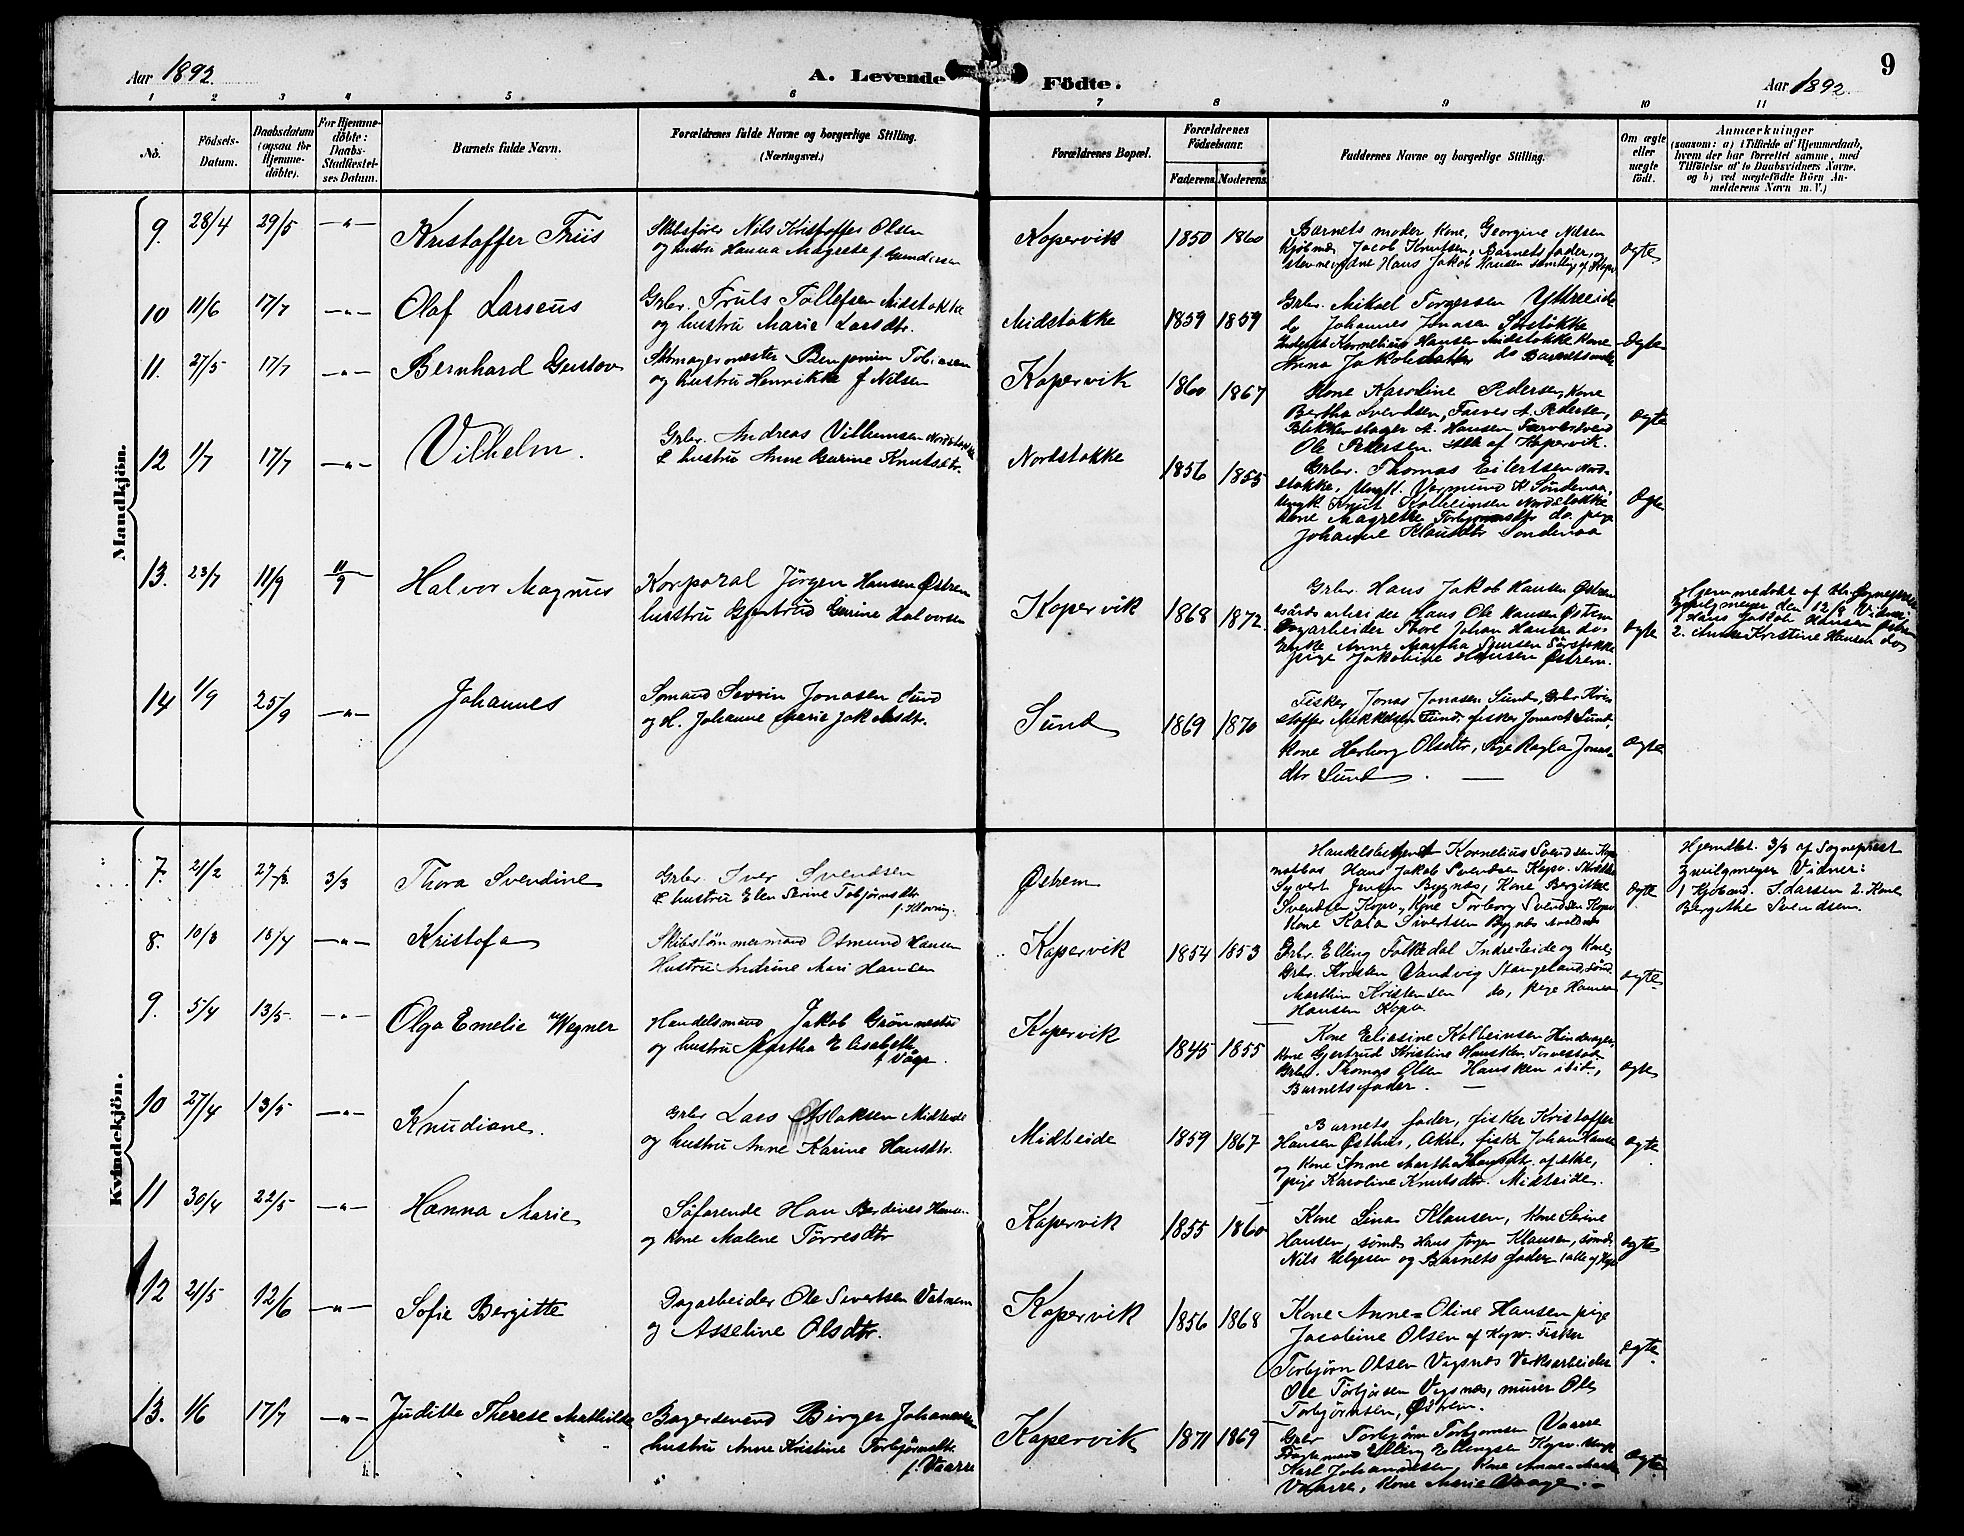 Aar 1892.
A. Levende Födte.
Aar 1892.
9
1 2 3 4 5 6 7 8 9 10 11
No.
Födsels-Datum.
Daabsdatum (ogsaa for Hjemme-döbte).
For Hjemme-döbte: Daabs-Stadfæstel-ses Datum.
Barnets fulde Navn.
Forældrenes fulde Navne og borgerlige Stilling.
(Næringsvei.)
Forældrenes Bopæl.
Forældrenes Födselsaar.
Faderens. Moderens.
Faddernes Navne og borgerlige Stilling.
Om ægte eller uægte födt.
Anmærkninger
(saasom: a) i Tilfælde af Hjemmedaab, hvem der har forrettet samme, med Tilföielse af to Daabsvidners Navne, og b) ved uægtefödte Börn An-melderens Navn m. V.)
Mandkjön.
9. 28/4 29/5 -"- Kristoffer Friis
Skibsfører Nils Kristoffer Olsen
og hustru Hanna Magrete f. Gundersen
Kopervik 1850 1860
Barnets moder Kone, Georgine Nilsen
Kjøbmd. Jacob Knutsen, Barnets fader, og
Hans Jakob Hansen samtlig af Kopv
ægte
10 11/6 17/7 -"- Olaf Larseus
Grbr. Truls Tollefsen Midstokke
og hustru Marie Larsdtr.
Midstokke 1859 1859
Grbr. Mikael Torgersen Yttreeide
do Johannes Jonasen Sørstokke
Kornelius Hansen Midstokke Kone
Anna Jakobsdatter do Barnets
Ægte
11. 27/5 17/7 -"- Bernhard Gustav
Skomagermester Benjamin Tobiasen
og hustru Henrikke f Nilsen
Kopervik 1860 1867
Kone Karoline Pedersen, Kone
Bertha Svendsen, Farver A. Pedersen,
Blikkenslager A. Hansen Farversvend
Ole Pedersen. Alle af Kopervik.
ægte
12 1/7 17/7 -"- Vilhelm.
Grbr. Andreas Vilhemsen Nordstokke
& hustru Anne Burine Knutsdtr.
Nordstokke 1856 1855
Grbr. Thomas Eilertsen Nord-
stokke, Ungk. Vermund K. Søndenaa,
Ungk Knut Kolbeinsen Nordstokke
Kone Magrethe Torbjørnsdtr do. pige
Johanne Klausdtr Søndenaa
Ægte
13. 23/7 11/9 11/9 Halvor Magnus
Korporal Jørgen Hansen Østrem
hustru Gjertrud Gurine Halvorsen
Kopervik 1868 1872.
Grbr. Hans Jakob Hansen Østrem
Gårdsarbeider Hans Ole Hansen Østrem
Dagarbeider Thore Johan Hansen do.
Enke Anne Martha Sørstokke
pige Jakobine Hansen Østrem.
ægte
Hjemmedøbt af Hr. Sognepræst
Zwilgmeyer den 12/8 Vidner:
1 Hans Jakob Hansen Østrem
2. Kristine Hansen do
14 1/9 25/9 -"- Johannes
Sømand Sevrin Jonasen Sund
og H. Johanne Marie Jakobsdtr.
Sund 1869 1870
Fisker Jonas Jonasen Sund, Grbr Kris-
stoffer Mikkelsen Sund, fisker Jonas Sund,
Kone Herborg Olsdtr, Pige Ragla Jonas-
dtr Sund
ægte
Kvindekjön.
7. 21/2 27/3. 3/3 Thora Svendine
Grbr. Iver Svendsen
& hustru Elen Serine Tobjørnsdtr
f. Kloving.
Østrem
Handelsbetjent Kornelius Svendsen Kop
Hans Jakob Svendsen Kopv.
Syvert Jensen Bygnæs, Kone Bergitte
Svendsen Kopv, Kone Torborg Svendsen Kopv
Kone Kala Sivertsen Bygnæs
ægte
Hjemdbt. 3/3 af Sognepræst
Zwilgmeyer Vidner:
1 Kjøbmd. S. Larsen 2. Kone
Bergithe Svendsen.
8. 10/3 18/4 -"- Kristofa
Skibstømmermand Osmund Hansen
Hustru Andrine Mari Hansen
Kopervik 1854 1853
Grbr. Elling Falkedal Indre-Eide og Kone
Grbr. Kristen Sandvig Stangeland, Sømd.
Marthin Kristensen do, pige Hanna
Hansen Kopv
ægte
9. 5/4 13/5. -"- Olga Emelie Wegner
Handelsmand Jakob Grønnestad
og hustru Martha Elisabeth
f. Våge
Kopervik 1845 1855
Kone Eliasine Kolbeinsen Hinderager,
Kone Gjertrud Kristine Hausken
Grbr. Thomas Olsen Hausken ibit,
Barnets fader.
ægte
10 27/4 13/5 -"- Knudiane.
Grbr Lars Aslaksen Midteide
og hustru Anne Karine Hansdtr.
Midteide 1859 1867
Barnets fader, fisker Kristoffer
Hansen Østhus, Akre, fiskr Johan Hansen
og Kone Anne Martha Hansdtr. af Akre,
pige Karoline Knutsdtr. Midteide.
ægte
11 30/4 22/5 -"- Hanna Marie
Søfarende Han Berdines Hansen
og Kone Malene Tørresdtr
Kopervik 1855 1860
Kone Lina Klausen, Kone Serine
Hansen, sømd Hans Jørgen Klausen, sømd.
Nils Helgesen og Barnets fader (alle af Kopv
ægte
12 21/5 12/6 -"- Sofie Bergitte
Dagarbeider Ole Sivertsen Vatnem
og Asseline Olsdtr.
Kopervik 1856 1868
Kone Anne=Oline Hansen pige
Jacobine Olsen af Kopv. Fisker
Torbjørn Olsen Vigsnæs Verksarbeider
Ole Torbjørsen Vigsnæs, murer Ole
Torbjørnsen, Østrem.
ægte.
13. 1/6 17/7 -"- Juditte Therese Mathilde
Bagersvend Birger Johannesen
hustru Anne Kristine Torbjørnsdtr.
f. Vaarre
Kopervik 1871 1869
Grbr Torbjørn Torbjørnsen Vaarre
Elling Ellingsen Kopv. Ungk
Karl Johannesen, Kone Anne=Marta
Vaarre, Kone Marie Vaage.
ægte